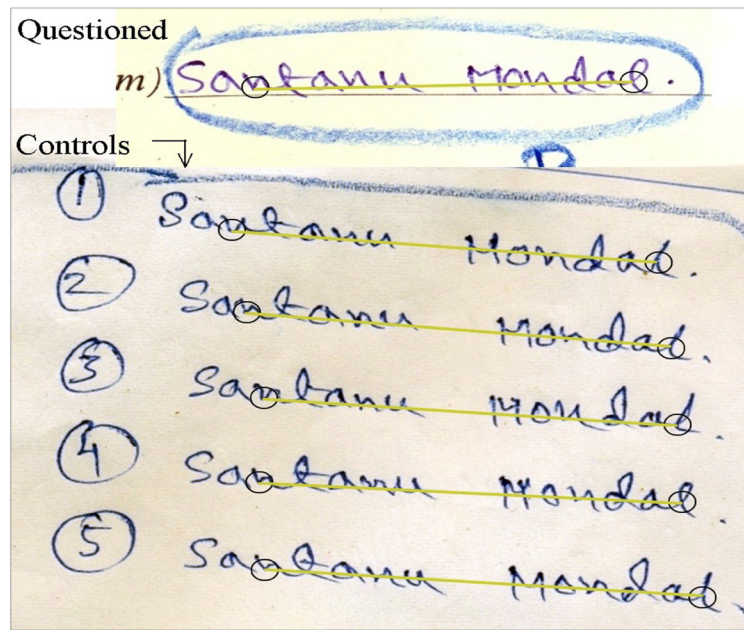 Questioned
m) Santanu Mondal.
Controls
1 Santanu Mondal.
2 Santanu Mondal.
3 Santanu Mondal.
4 Santanu Mondal.
5 Santanu Mondal.